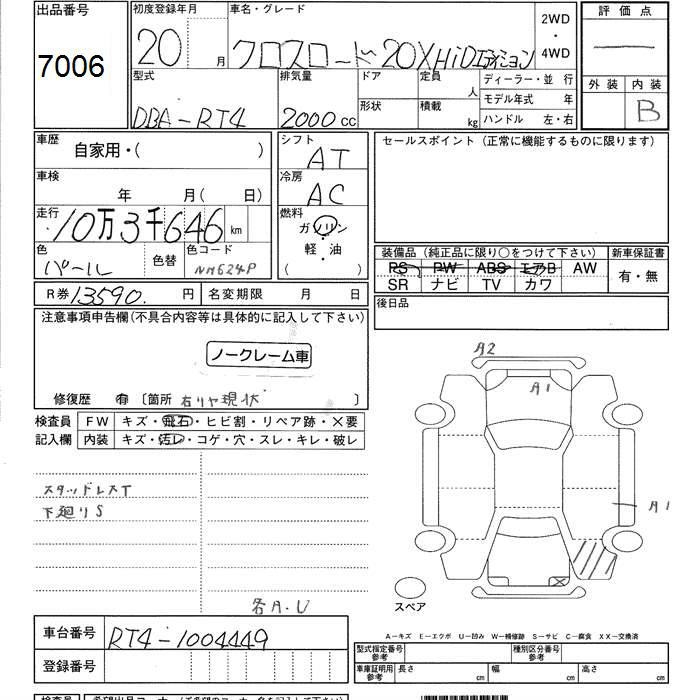 出品番号
7006
初度登録年月
20 月
車名・グレード
クロスロード 20X HiDエディション
2WD
・
4WD
評価点
外装 内装
B
型式
DBA-RT4
排気量
2000 cc
ドア
形状
定員
人
積載
kg
ディーラー・並 行
モデル年式 年
ハンドル 左・右
車歴
自家用・( )
車検
年 月( 日)
走行
10万3千646 km
色
パール
色替
色コード
NH624P
シフト
AT
冷房
AC
燃料
ガソリン
・
軽・油
( )
セールスポイント(正常に機能するものに限ります)
装備品(純正品に限り○をつけて下さい)
PS PW ABS エアB AW
SR ナビ TV カワ
新車保証書
有・無
後日品
R券 13590. 円
名変期限 月 日
注意事項申告欄(不具合内容等は具体的に記入して下さい)
ノークレーム車
修復歴 有 〔箇所 右リヤ現状
検査員
記入欄
FW キズ・飛石・ヒビ割・リペア跡・×要
内装 キズ・汚レ・コゲ・穴・スレ・キレ・破レ
スタッドレスT
下廻りS
各A.U
A2
A1
A1
スペア
A-キズ E-エクボ U-凹み W-補修跡 S-サビ C-腐食 XX-交換済
車台番号
RT4-1004449
登録番号
型式指定番号
参考
種別区分番号
参考
車庫証明用
参考
長さ cm
幅 cm
高さ cm